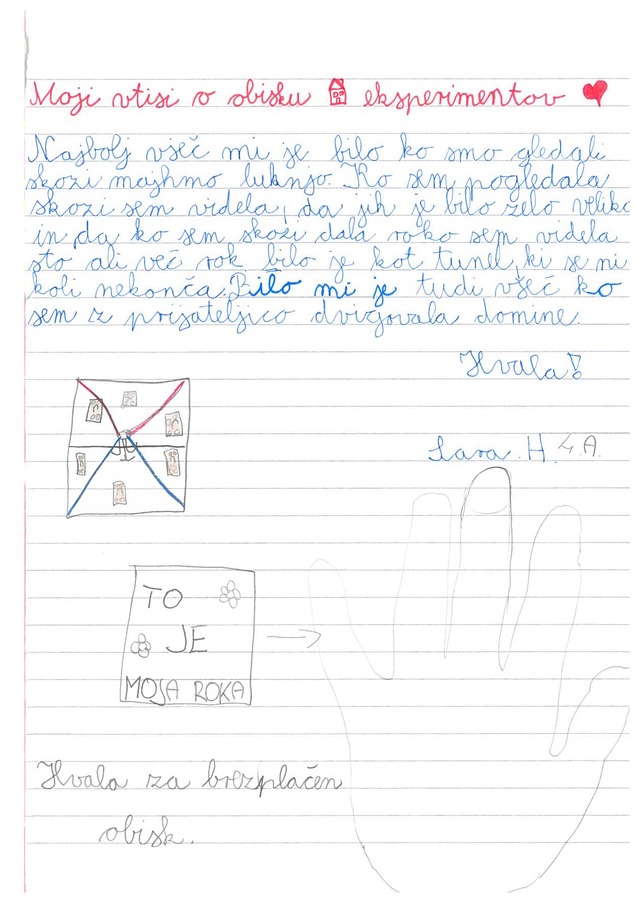 Moji vtisi o obisku eksperimentov
Najbolj všeč mi je bilo ko smo gledali
skozi majhmo luknjo. Ko sem pogledala
skozi sem videla, da jih je bilo zelo veliko
in da ko sem skozi dala roko sem videla
sto ali več rok bilo je kot tunel, ki se ni
koli nekonča. Bilo mi je tudi všeč ko
sem z prijateljico dvigovala domine.
Hvala!
Lara H. 4.A.
TO
JE
MOJA ROKA
Hvala za brezplačen
obisk.